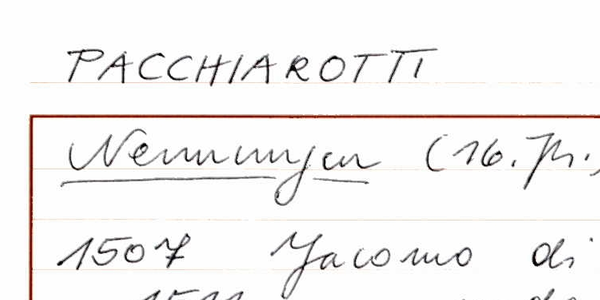 PACCHIAROTTI
Nennungen (16. Jh.)
1507 Jacomo di
1511